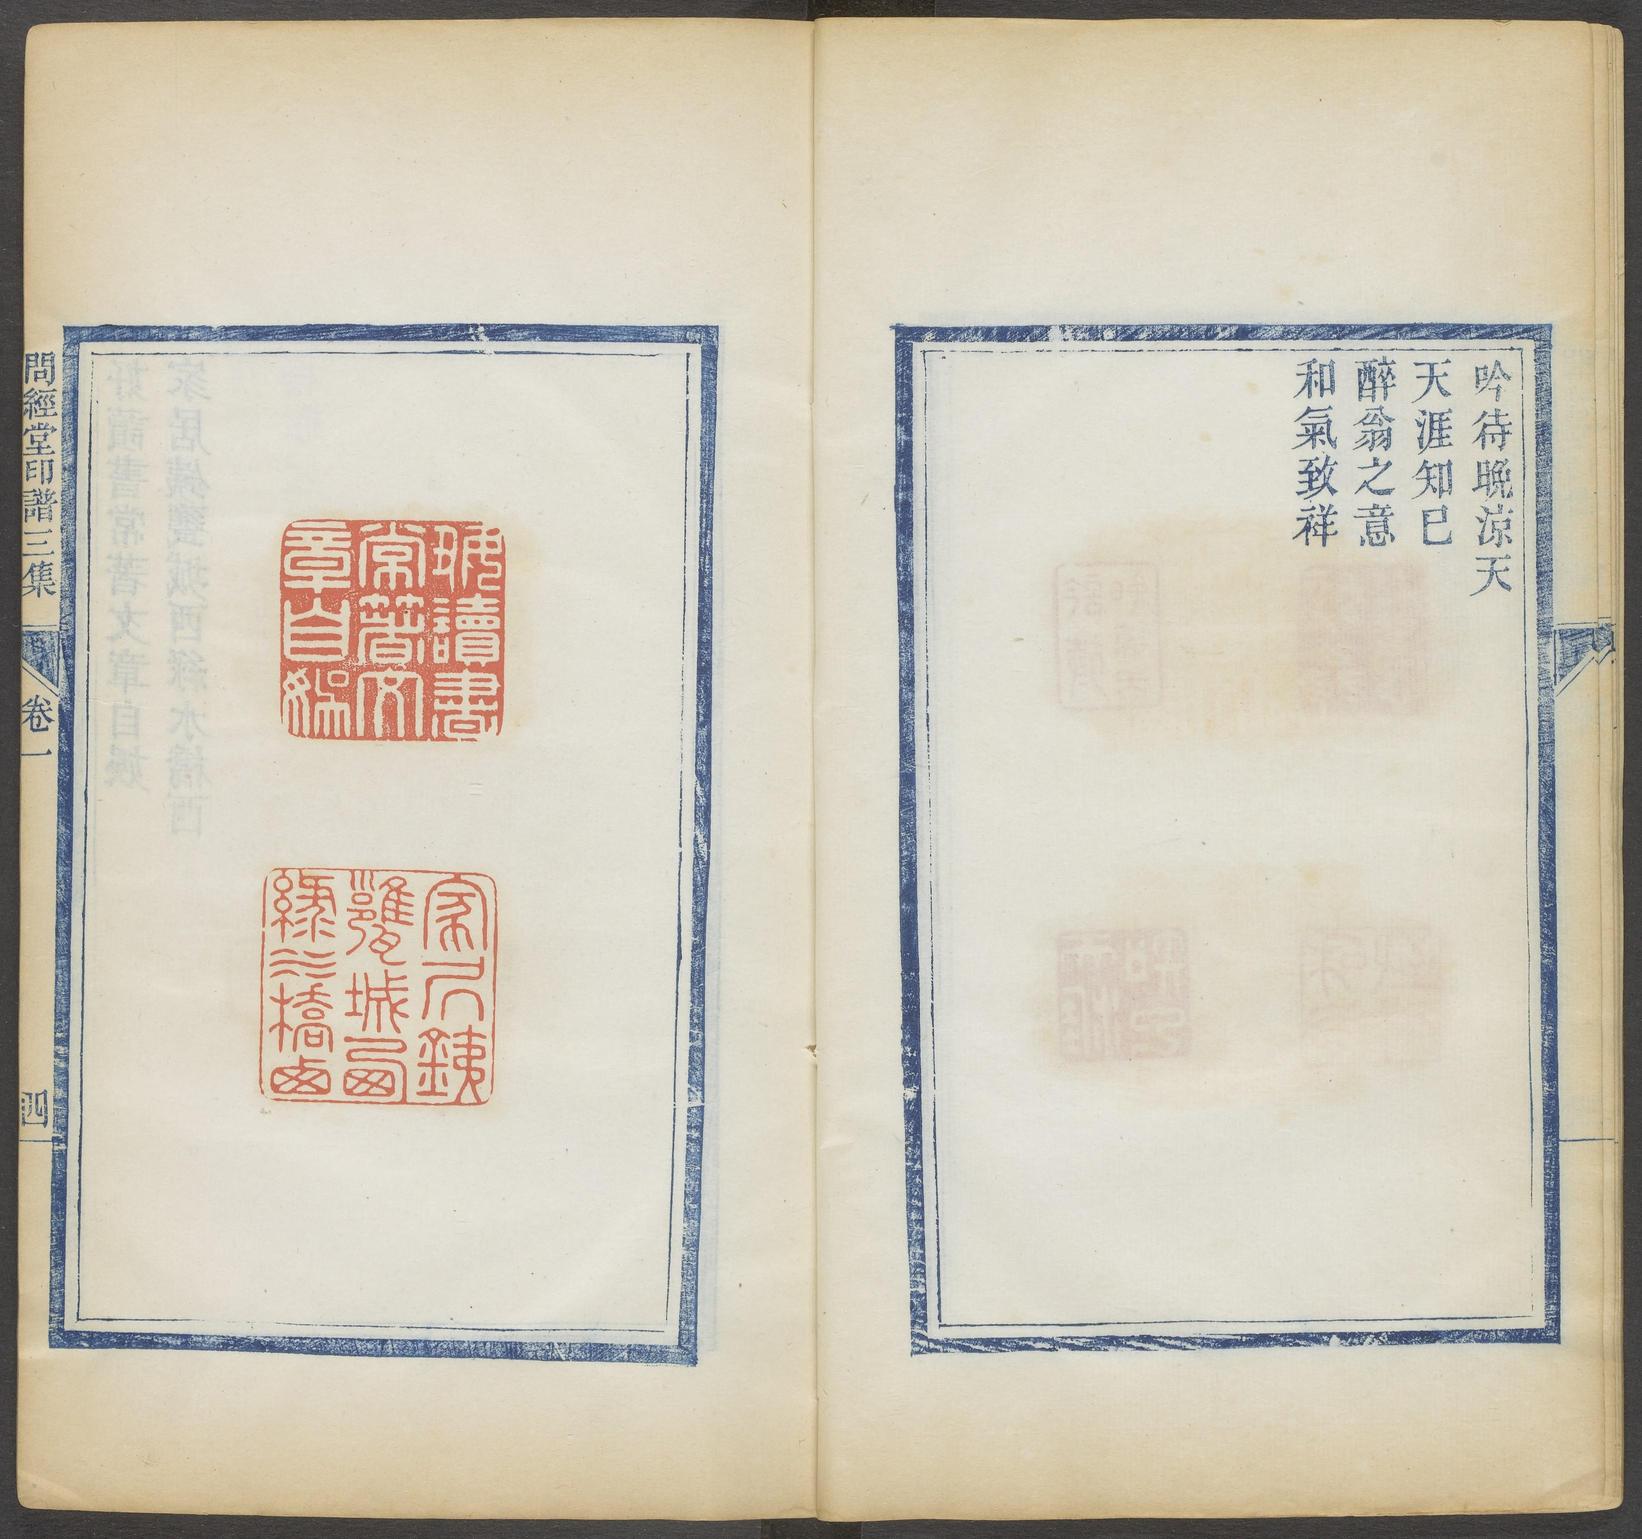 吟待晚涼天
天涯知己
醉翁之意
和氣致祥
好讀書
常著文
章自娛
家居鐵
甕城西
綠水橋西
問經堂印譜三集
卷一
四